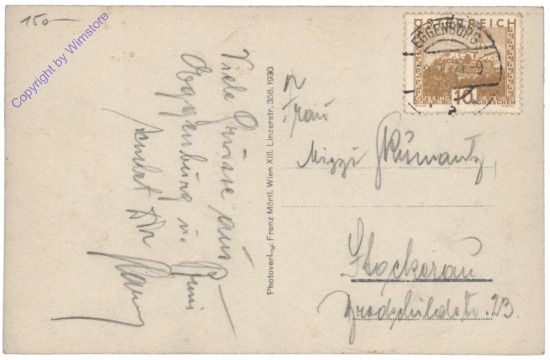 150-
Copyright by Wimstore
Viele Grüsse aus
Eggenburg in
sendet Dir
Photoverlag Franz Mörtl, Wien XIII. Linzerstr. 358. 1930
ÖSTERREICH
EGGENBURG
10
Frau
Mizzi
Stockerau
23